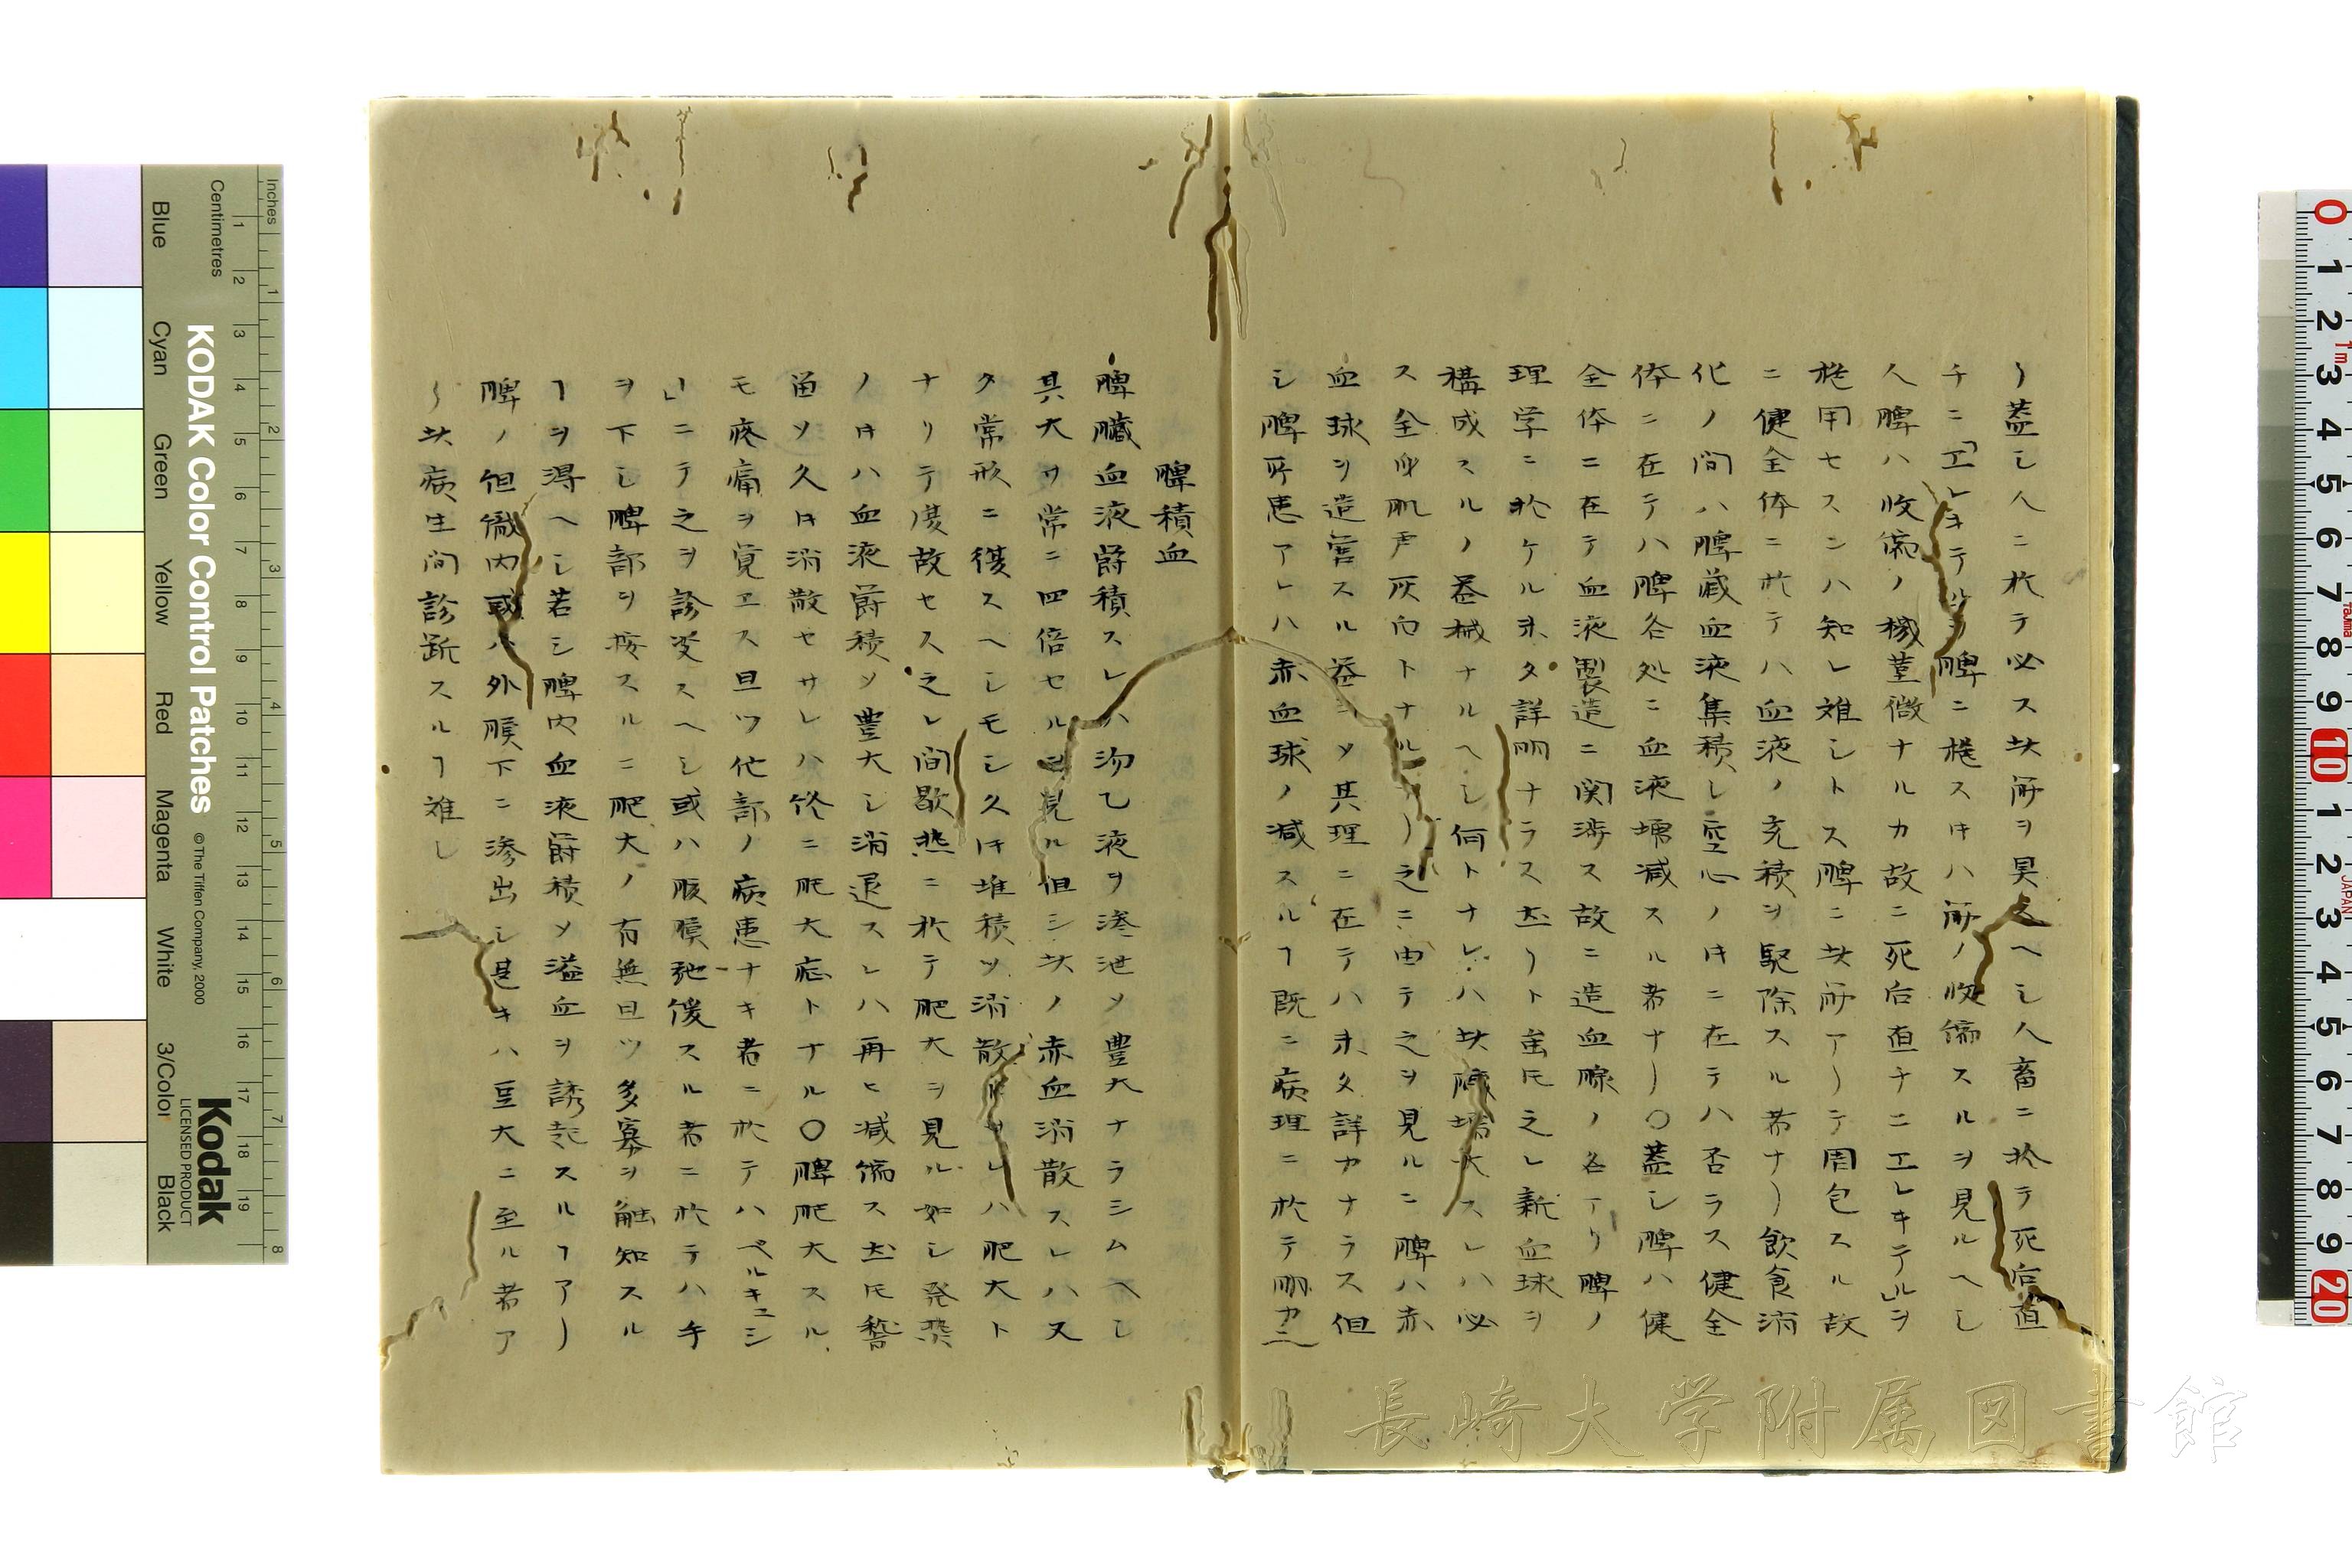 )蓋シ人ニ於テ必ス此所ヲ異ニスヘシ人畜ニ於テ死后直
チニ「エレキテル」ヲ脾ニ施スキハ所ノ收縮スルヲ見ルヘシ
人脾ハ收縮ノ機莖微ナルカ故ニ死后直チニエレキテル」ヲ
施用セスンハ知レ雖シトス脾ニ此所ア)テ周包スル故
ニ健全体ニ於テハ血液ノ充積ヲ駆除スル者ナ)飲食消
化ノ間ハ脾蔵血液集積シ空心ノキニ在テハ否ラス健全
体ニ在テハ脾各処ニ血液増減スル者ナ)〇蓋シ脾ハ健
全体ニ在テ血液製造ニ関渉ス故ニ造血腺ノ名アリ脾ノ
理学ニ於ケル未タ詳明ナラス𪜈之レ新血球ヲ
構成スルノ器械ナルヘシ何トナレハ此臓増大スレハ必
ス全身肌声灰白トナルア)之ニ由テ之ヲ見ルニ脾ハ赤
血球ヲ造営スル器ニメ其理ニ在テハ未タ詳カナラス但
シ脾所患アレハ赤血球ノ減スルヿ既ニ病理ニ於テ明カニ
脾積血
脾臓血液欝積スレハ沕乙液ヲ滲泄メ豊大ナラシムヘシ
其大サ常ニ四倍セルヲ見ル但シ此ノ赤血消散スレハ又
タ常形ニ復スヘシモシ久キ堆積ツ消散セサレハ肥大ト
ナリテ復故セス之レ間歇熱ニ於テ肥大ヲ見ル如シ発熱
ノキハ血液欝積メ豊大シ消退スレハ再ヒ減縮ス𪜈稽
留メ久キ消散セサレハ終ニ肥大症トナル〇脾肥大スル
モ疼痛ヲ覚エス且ツ他部ノ病患ナキ者ニ於テハベルキニシ
」ニテ之ヲ診定スヘシ或ハ腹膜弛緩スル者ニ於テハ手
ヲ下シ脾部ヲ按スルニ肥大ノ有無且ツ多寡ヲ触知スル
ヿヲ得ヘシ若シ脾内血液欝積メ溢血ヲ誘起スルヿア)
脾ノ但徽内或ハ外膜下ニ滲出シ甚キハ豆大ニ至ル者ア
)此病生間診断スルヿ雖シ
KODAK Color Control Patches
© The Tiffen Company, 2000
Kodak
LICENSED PRODUCT
Inches
Centimetres
Blue
Cyan
Green
Yellow
Red
Magenta
White
3/Color
Black
JAPAN
長崎大学附属図書館